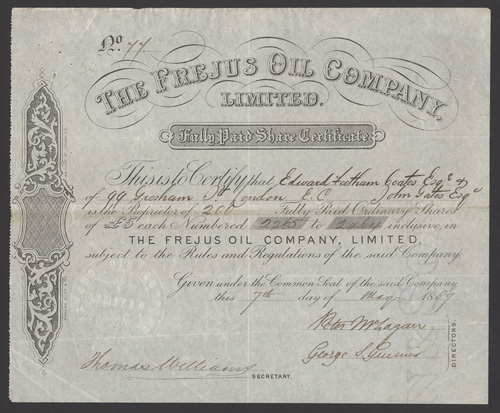 No. 77
THE FREJUS OIL COMPANY,
LIMITED.
Fully Paid Share Certificate
This is to Certify that Edward Feetham Coates Esqr. &
of 99 Gresham St. London E.C. John Gates Esqr.
is the Proprietor of 200 Fully Paid Ordinary Shares
of £5 each Numbered 2265 to inclusive, in
THE FREJUS OIL COMPANY, LIMITED,
subject to the Rules and Regulations of the said Company
Given under the Common Seal of the said Company
this 7th day of May 1889
Peter McLagan
George S.
DIRECTORS.
Thomas Williams
SECRETARY.